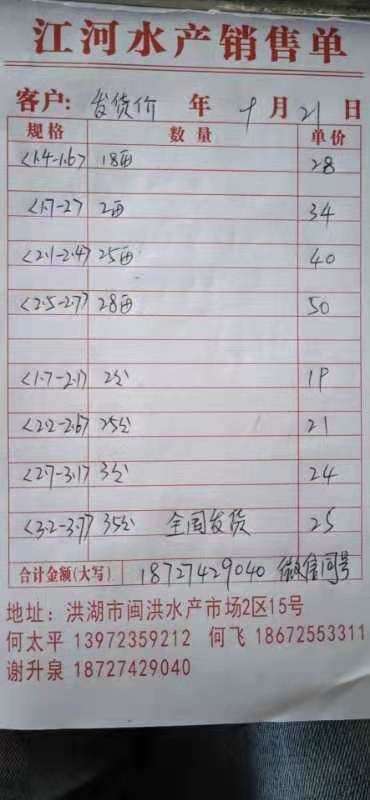 江河水产销售单
客户: 发货价 年 十 月 21 日
规格 数量 单价
<1.4-1.6> 18西 28
<1.7-2> 2西 34
<2.1-2.4> 25西 40
<2.5-2.7> 28西 50
<1.7-2.1> 2公 19
<2.2-2.6> 25公 21
<2.7-3.1> 3公 24
<3.2-3.7> 35公 全国发货 25
合计金额(大写) 18727429040 微信同号
地址: 洪湖市闽洪水产市场2区15号
何太平 13972359212 何飞 18672553311
谢升泉 18727429040